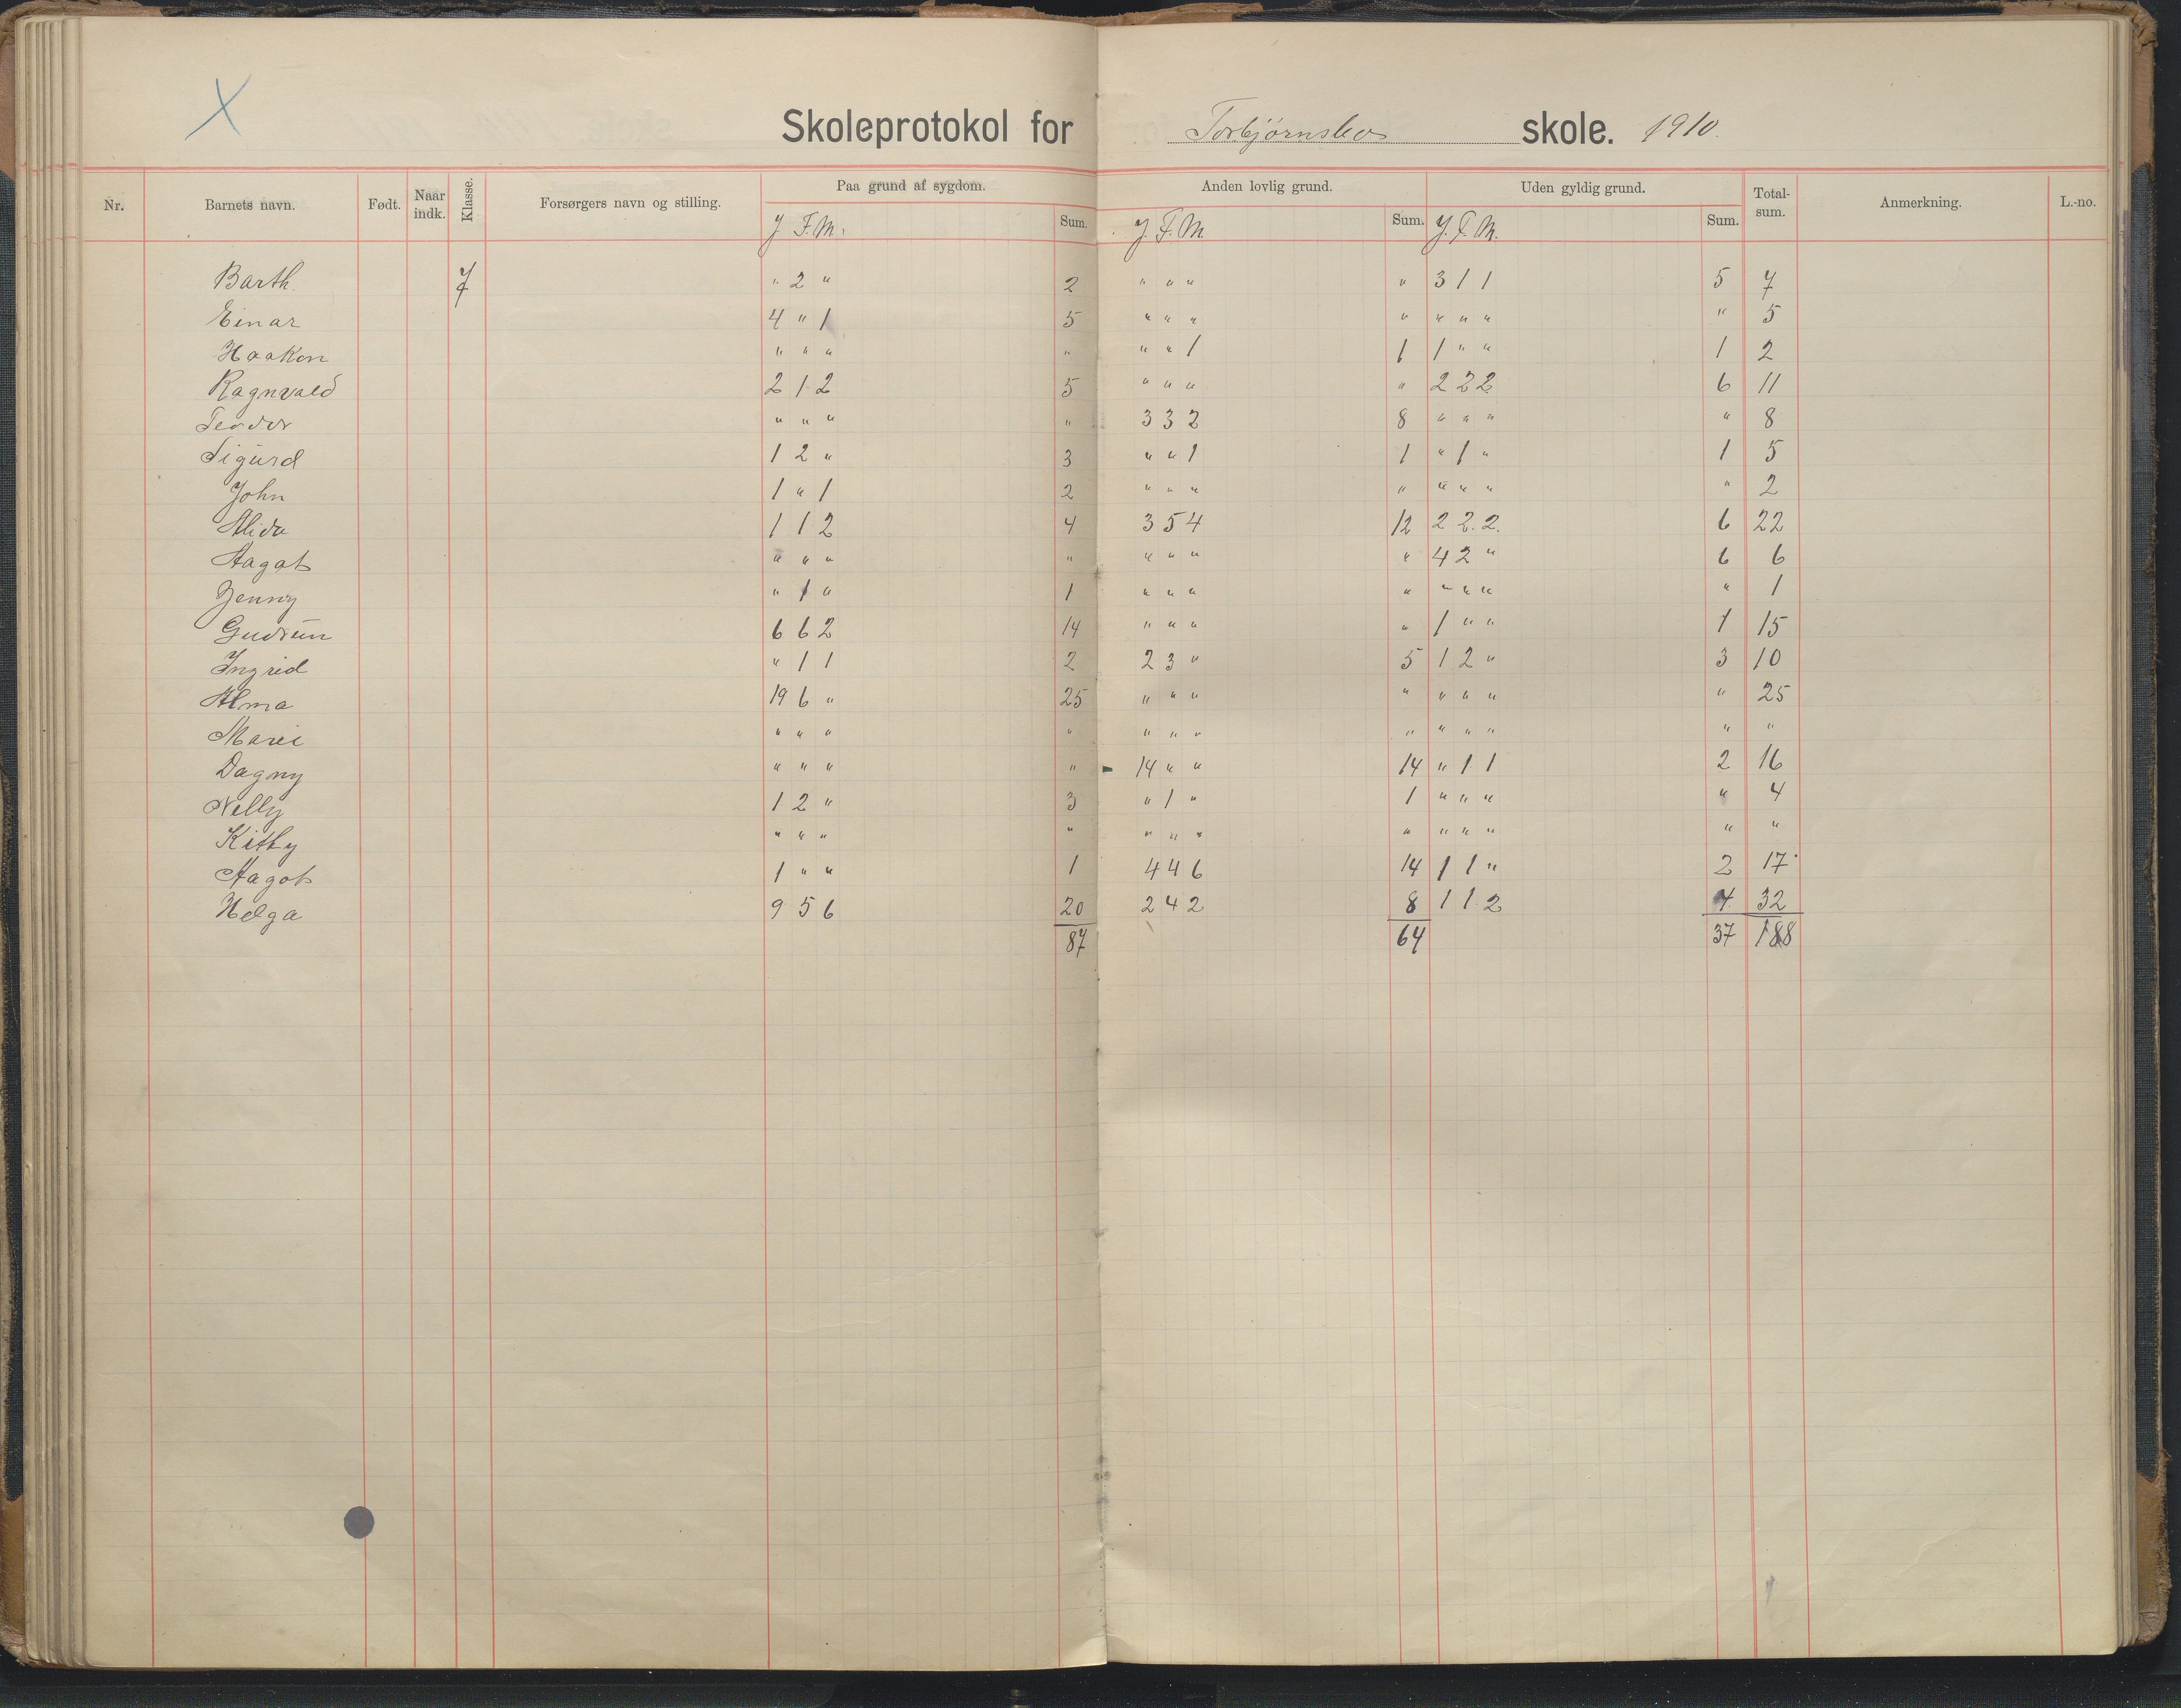 Skoleprotokol for Torbjørnsbo skole. 1910.
Nr. Barnets navn. Født. Naar indk. Klasse. Forsørgers navn og stilling. Paa grund af sygdom. Sum. Anden lovlig grund. Sum. Uden gyldig grund. Sum. Total-sum. Anmerkning. L.-no.
J. F. M. J. F. M. J. F. M.
Barth. 7 " 2 " 2 " " " " 3 1 1 5 7
Einar 4 " 1 5 " " " " " " " " 5
Haakon " " " " " " 1 1 1 " " 1 2
Ragnvald 2 1 2 5 " " " " 2 2 2 6 11
Teodor " " " " 3 3 2 8 " " " " 8
Sigurd 1 2 " 3 " " 1 1 " 1 " 1 5
John 1 " 1 2 " " " " " " " " 2
Alida 1 1 2 4 3 5 4 12 2 2 2 6 22
Aagot " " " " " " " " 4 2 " 6 6
Jenny " 1 " 1 " " " " " " " " 1
Gudrun 6 6 2 14 " " " " 1 " " 1 15
Ingrid " 1 1 2 2 3 " 5 1 2 " 3 10
Alma 19 6 " 25 " " " " " " " " 25
Marie " " " " " " " " " " " " "
Dagny " " " " 14 " " 14 " 1 1 2 16
Nelly 1 2 " 3 " 1 " 1 " " " " 4
Kitty " " " " " " " " " " " " "
Aagot 1 " " 1 4 4 6 14 1 1 " 2 17
Helga 9 5 6 20 2 4 2 8 1 1 2 4 32
87 64 37 188